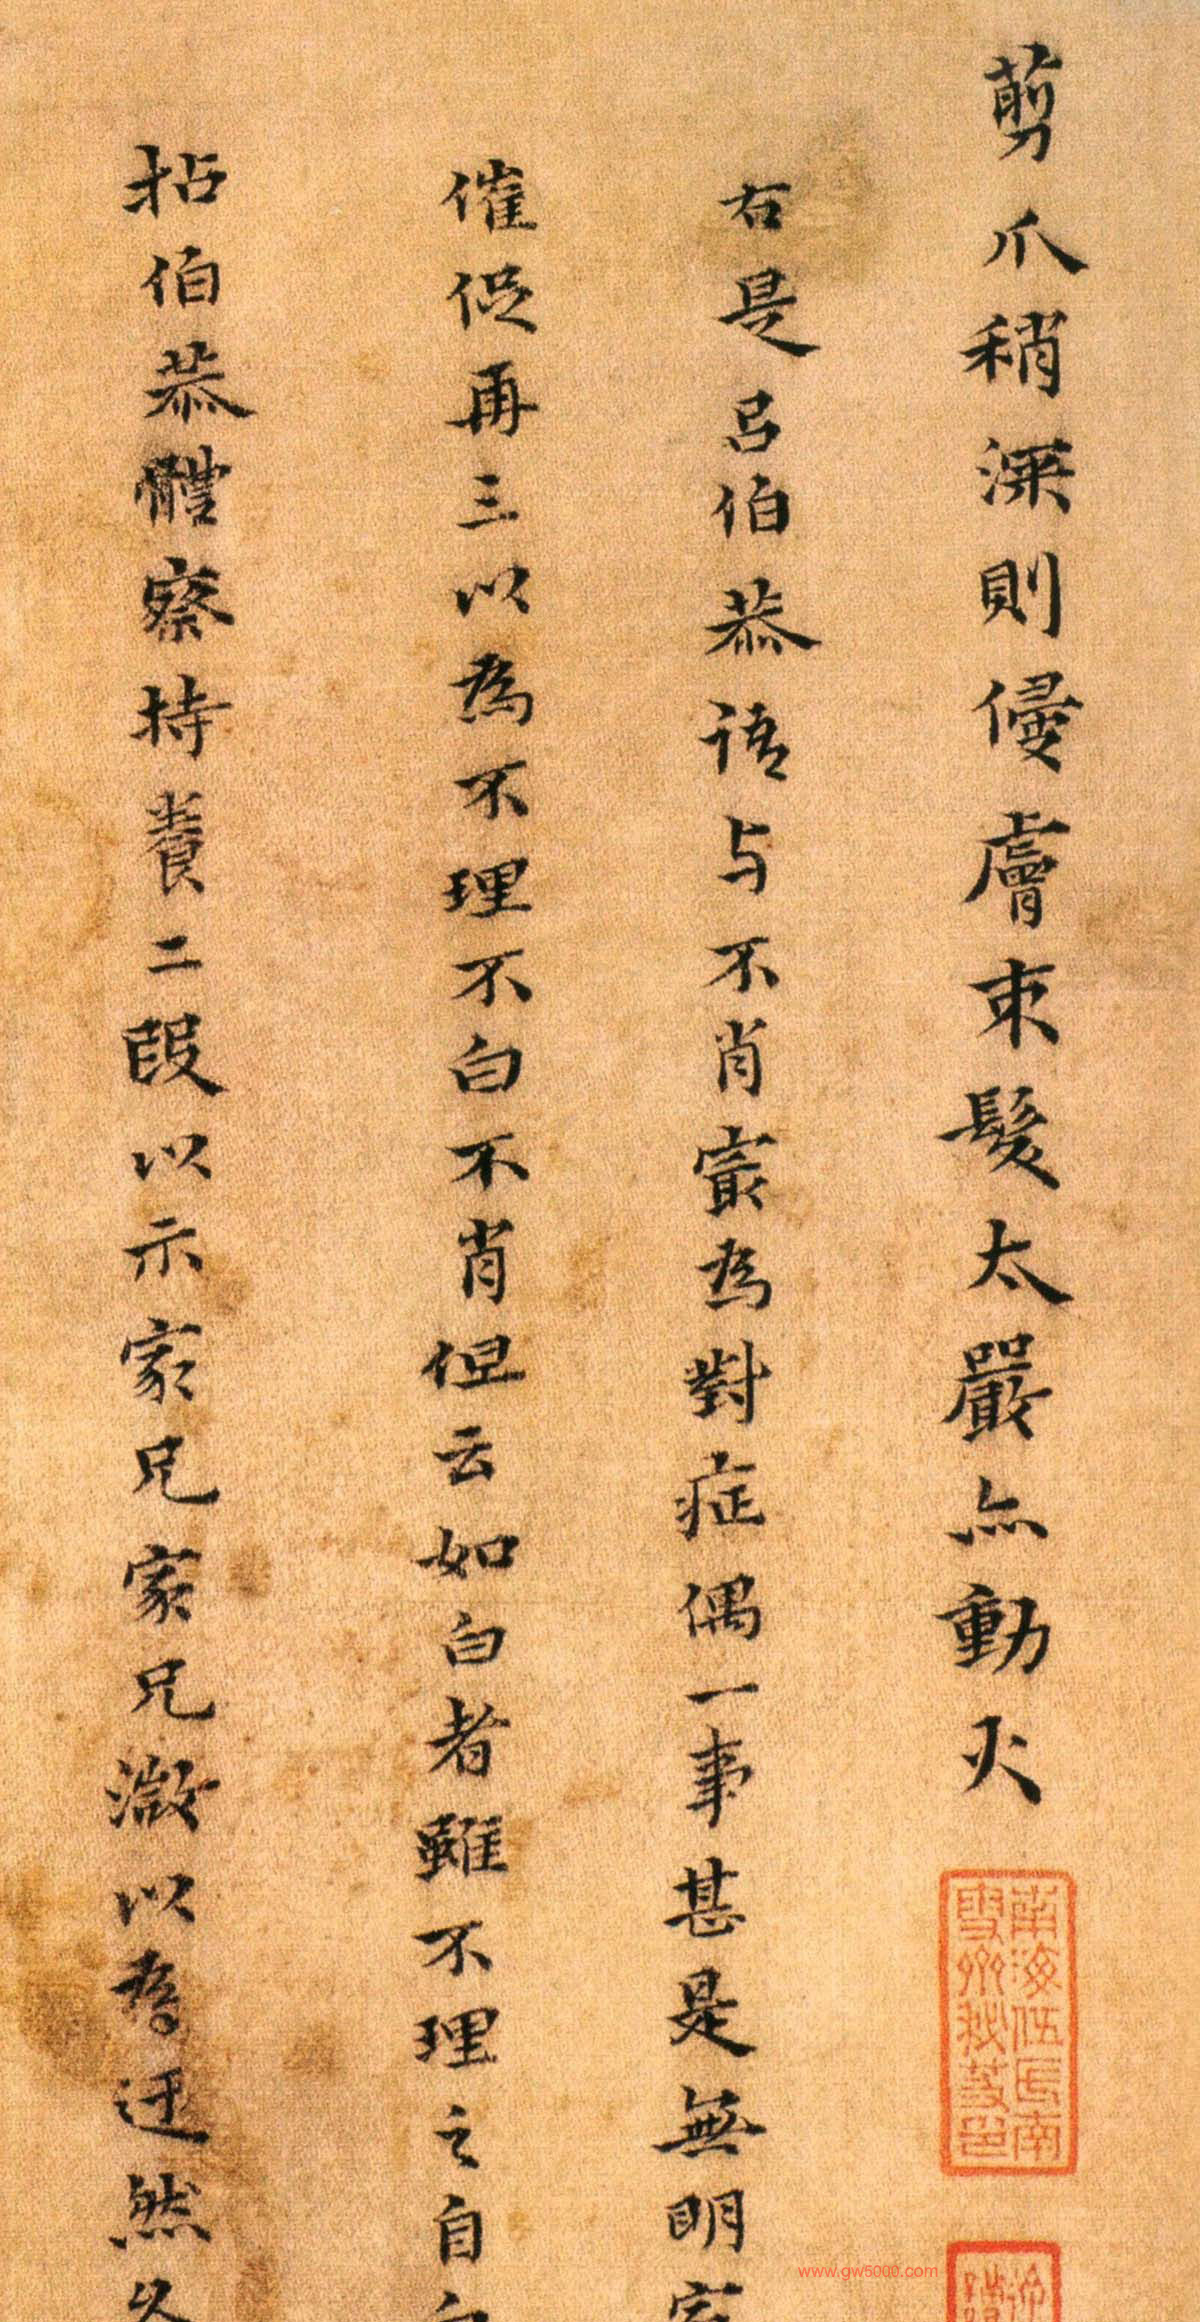 剪爪稍深則侵膚束髮太嚴亦動火
右是呂伯恭語与不肖宲為對症偶一事甚是無明家
催促再三以為不理不白不肖但云如白者雖不理之自白
拈伯恭體察持養二段以示家兄家兄激以為迂然久
南海伍氏南
雪齋秘笈印
www.gw5000.com